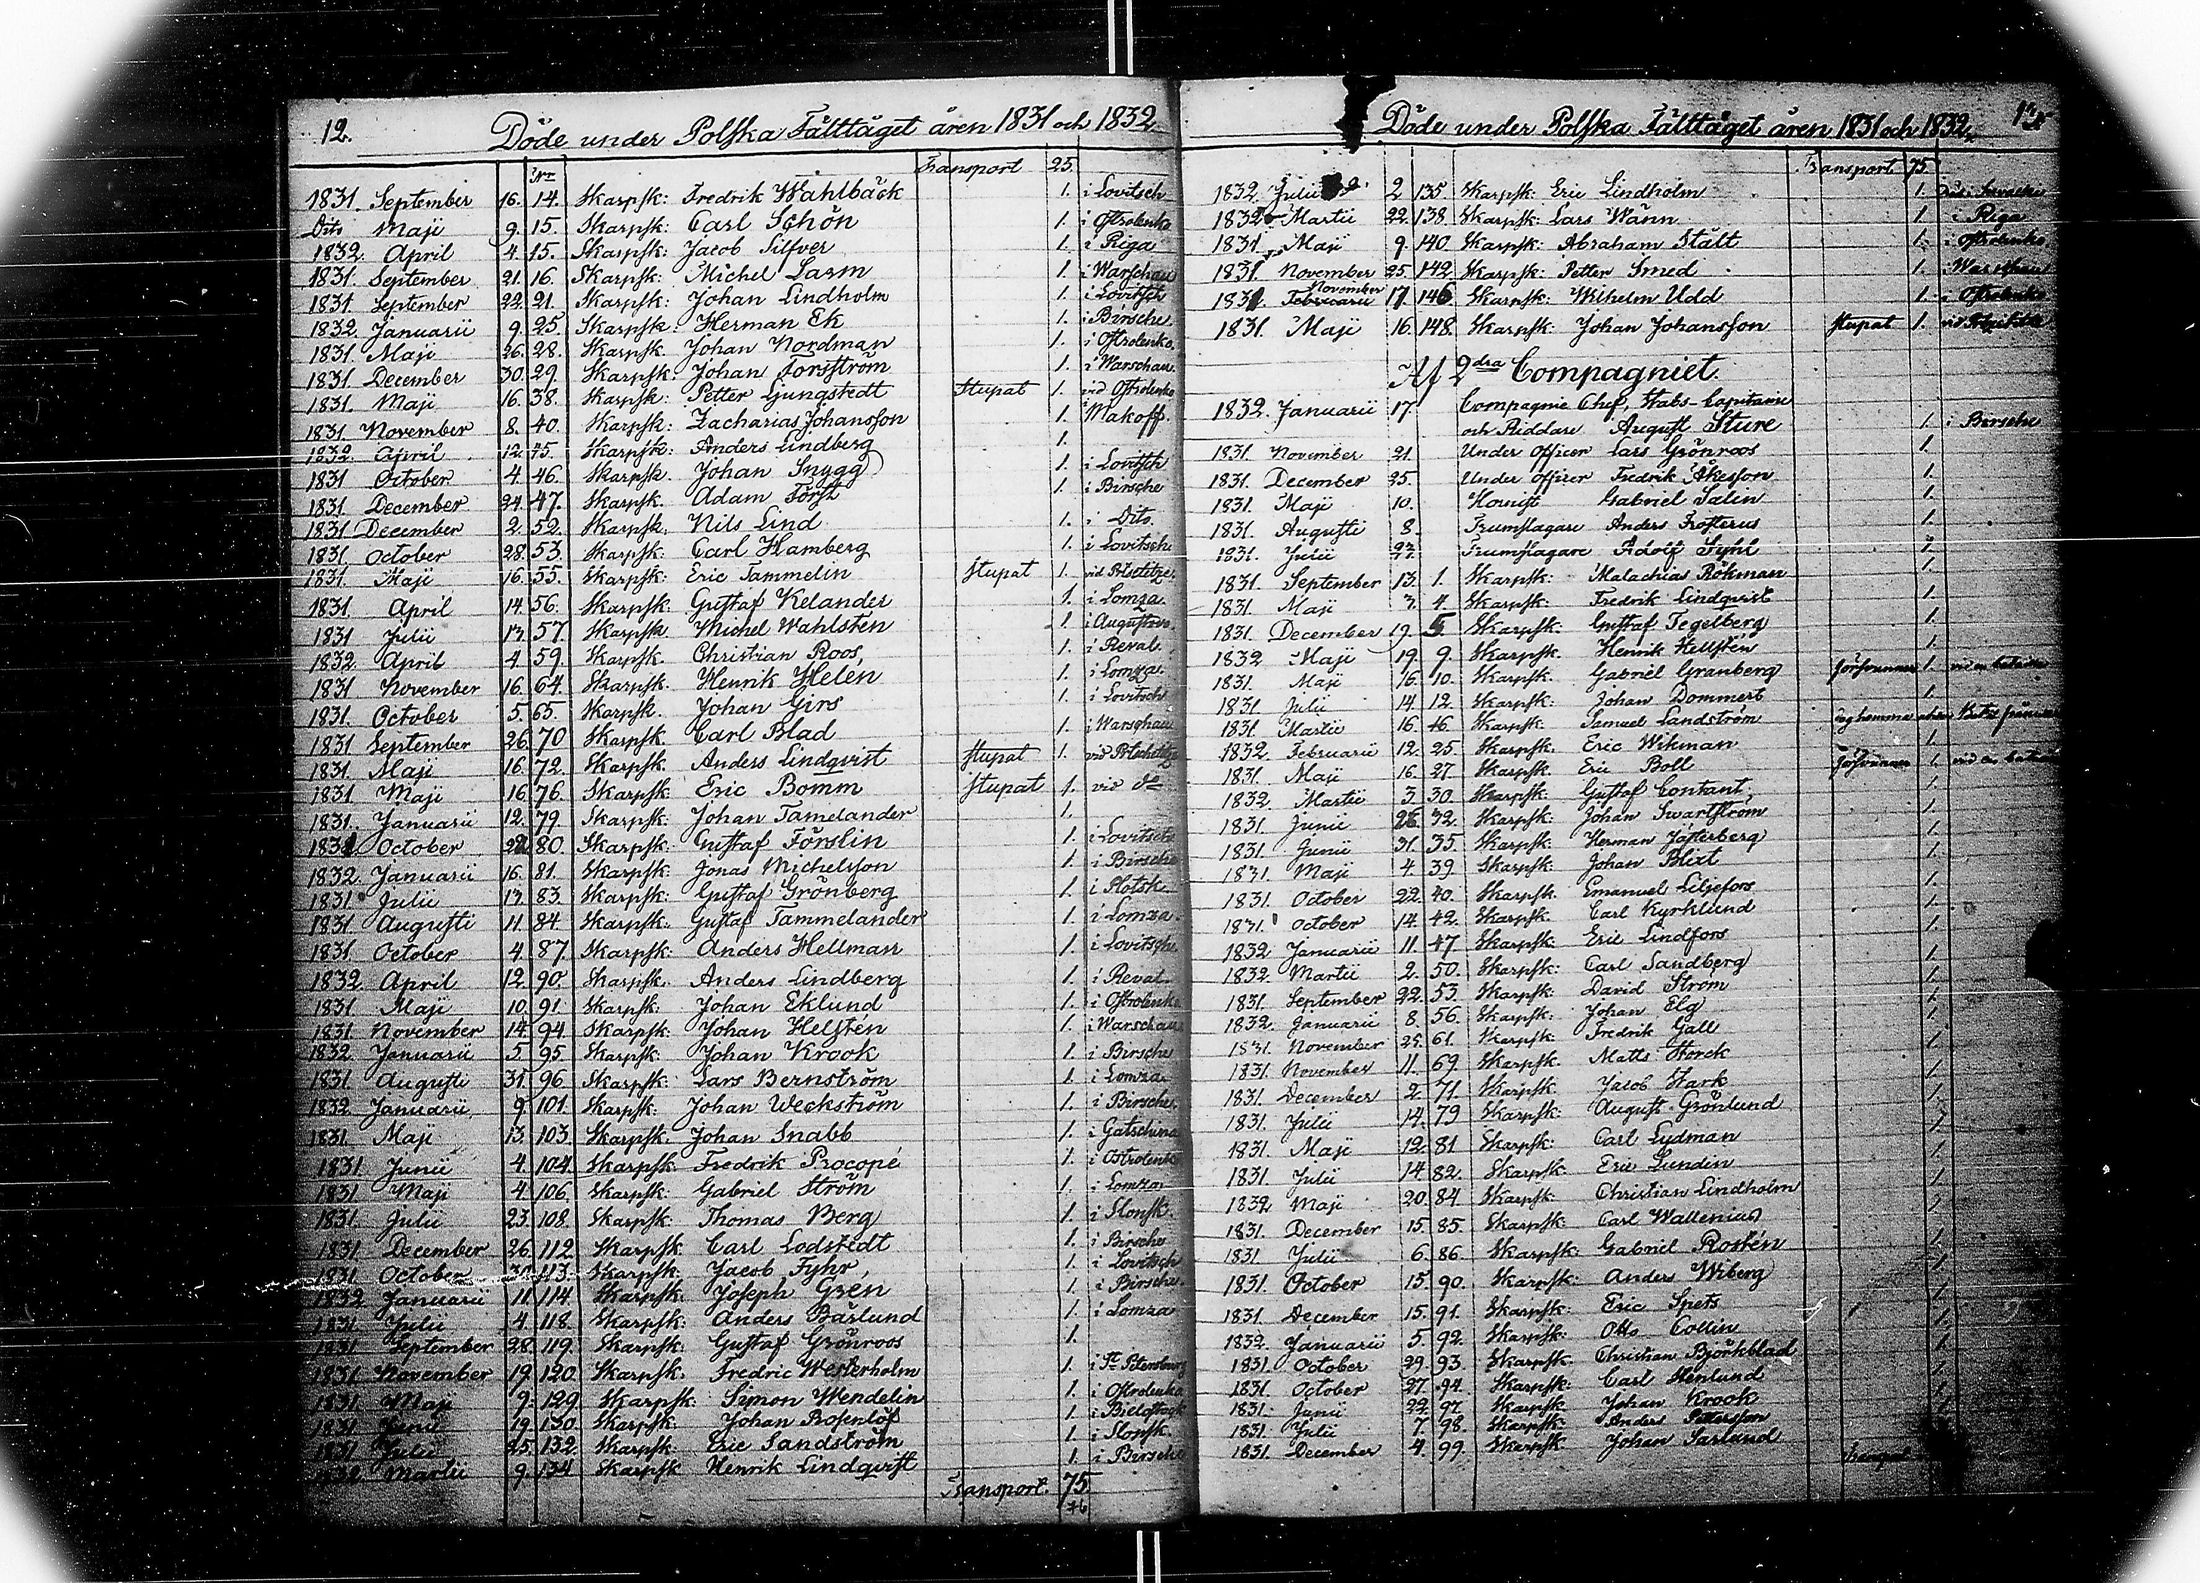 12.
Döde under Polska Fälttåget åren 1831 och 1832
Transport 25.
No
1831. September 16. 14. Skarpsk: Fredrik Wahlbäck 1. i Lovitsch
Dito Maji 9. 15. Skarpsk: Carl Schön 1. i Ostrolenko
1832. April 4. 15. Skarpsk: Jacob Silfver 1. i Riga
1831. September 21. 16. Skarpsk: Michel Larm 1. i Warschau
1831. September 22. 21. Skarpsk: Johan Lindholm 1. i Lovitsch
1832. Januarii 9. 25. Skarpsk: Herman Ek 1. i Birsche
1831. Maji 26. 28. Skarpsk. Johan Nordman 1. i Ostrolenko.
1831. December 30. 29. Skarpsk: Johan Forsström 1. i Warschau.
1831. Maji 16. 38. Skarpsk: Petter Ljungstedt Stupat 1. vid Ostrolenko
1831. November 8. 40. Skarpsk: Zacharias Johansson 1. Makoff.
1832. April 12. 45. Skarpsk: Anders Lindberg 1.
1831 October 4. 46. Skarpsk. Johan Snygg 1. i Lovitsch
1831. December 24. 47. Skarpsk. Adam Först 1. i Birsche
1831 December 2. 52. Skarpsk. Nils Lind 1. i Dito.
1831. October 28. 53. Skarpsk: Carl Hamberg 1. i Lovitsch
1831. Maji 16. 55. Skarpsk: Eric Tammelin Stupat 1. vid
1831 April 14. 56. Skarpsk: Gustaf Kelander 1. i Lomza.
1831 Julii 17. 57. Skarpsk. Michel Wahlsten 1. i Augustovo
1832. April 4. 59. Skarpsk. Christian Roos, 1. i Reval.
1831 November 16. 64. Skarpsk. Henrik Helen 1. i Lomza.
1831. October 5. 65. Skarpsk. Johan Girs 1. i Lovitsch
1831 September 26. 70 Skarpsk. Carl Blad 1. i Warschau
1831. Maji 16. 72. Skarpsk. Anders Lindqvist Stupat 1. vid
1831 Maji 16 76. Skarpsk: Eric Bomm Stupat 1. vid do
1831. Januarii 12. 79 Skarpsk: Johan Tamelander 1.
1831 October 28. 80. Skarpsk: Gustaf Förslin 1. i Lovitsch
1832. Januarii 16. 81. Skarpsk: Jonas Michelsson 1. i Birsche
1831 Julii 17. 83. Skarpsk: Gustaf Grönberg 1. i Plotsk.
1831 Augusti 11. 84. Skarpsk: Gustaf Tammelander 1. i Lomza.
1831. October 4. 87. Skarpsk: Anders Hellman 1. i Lovitsch
1832 April 12. 90. Skarpsk. Anders Lindberg 1. i Reval.
1831 Maji 10. 91. Skarpsk: Johan Eklund 1. i Ostrolenko
1831. November 14. 94. Skarpsk: Johan Helstén 1. i Warschau
1832. Januarii 5. 95. Skarpsk: Johan Krook 1. i Birsche
1831 Augusti 31. 96 Skarpsk: Lars Bernström 1. i Lomza
1832. Januarii 9. 101. Skarpsk: Johan Weckström 1. i Birsche.
1831. Maji 13. 103. Skarpsk. Johan Snabb 1. i Gatschina
1831. Junii 4. 104. Skarpsk: Fredrik Procopé 1. i Ostrolenko
1831 Maji 4. 106. Skarpsk: Gabriel Ström 1. i Lomza
1831. Julii 23. 108. Skarpsk: Thomas Berg 1. i Slonsk.
1831 December 26. 112. Skarpsk: Carl Lodstedt 1. i Birsche
1831. October 30. 113. Skarpsk: Jacob Fyhr 1. i Lovitsch
1832 Januarii 11. 114 Skarpsk. Joseph Grén 1. i Birsche.
1831 Julii 4. 118. Skarpsk: Anders Barlund 1. i Lomza
1831 September 28. 119. Skarpsk: Gustaf Grönroos 1.
1831. November 19. 120. Skarpsk. Fredric Westerholm 1. i St Petersburg
1831. Maji 9. 129. Skarpsk: Simon Wendelin 1. i Ostrolenko
1831 Junii 19. 130. Skarpsk: Johan Rosenlöf 1. i Bielostock
1831 Julii 25. 132. Skarpsk: Eric Sandström 1. i Slonsk.
1832. Martii 9. 134 Skarpsk Henrik Lindqvist 1. i Birsche
Transport. 75.
76
Döde under Polska Fälttåget åren 1831 och 1832.
Transport 75.
1832. Julii 2 135. Skarpsk: Eric Lindholm 1.
1832. Martii 22. 138. Skarpsk: Lars Wänn 1. i Riga
1831. Maji 9. 140. Skarpsk: Abraham Stålt 1. i Ostrolenko
1831. November 25. 142. Skarpsk: Petter Smed 1. i Warschau
November
1831 Februarii 17. 146 Skarpsk: Wilhelm Udd 1. i Ostrolenko
1831. Maji 16. 148. Skarpsk: Johan Johansson Stupat 1. vid
Af 2dra Compagniet.
1832. Januarii 17. Compagnie Chef, Stabs-Capitaine
och Riddare August Sture 1. i Birsche
1831. November 21. Under Officer Lars Grönroos 1.
1831. December 25. Under officer Fredrik Åkesson 1.
1831. Maji 10. Hornist Gabriel Salin 1.
1831. Augusti 8. Trumslagare Anders Frosterus 1.
1831. Julii 27. Trumslagare Adolf Fyhl 1.
1831. September 13. 1. Skarpsk: Malachias Rökman 1.
1831. Maji 3. 4. Skarpsk: Fredrik Lindqvist 1.
1831. December 19. 5. Skarpsk. Gustaf Tegelberg 1.
1832 Maji 19. 9. Skarpsk. Henrik Hellstén 1.
1831. Maji 16. 10. Skarpsk. Gabriel Granberg försvunnen 1. vid en
1831 Julii 14. 12. Skarpsk: Johan Dommert 1.
1831. Martii 16. 16. Skarpsk: Samuel Landström
1832. Februarii 12. 25. Skarpsk: Eric Wikman 1.
1831. Maji 16. 27. Skarpsk. Eric Boll försvunnen 1. vid en
1832. Martii 3. 30. Skarpsk: Gustaf Contant, 1.
1831. Junii 26. 32. Skarpsk: Johan Swartström 1.
1831. Junii 31. 35. Skarpsk: Herman 1.
1831. Maji 4. 39 Skarpsk: Johan Blixt 1.
1831. October 22. 40. Skarpsk: Emanuel Liljefors 1.
1831 October 14. 42. Skarpsk: Carl Kyrklund 1.
1832. Januarii 11. 47 Skarpsk. Eric Lindfors 1.
1832 Martii 2. 50. Skarpsk: Carl Sandberg 1.
1831. September 22. 53. Skarpsk. David Strom 1.
1832. Januarii 8. 56. Skarpsk: Johan Elg 1.
1831. November 25. 61. Skarpsk: Fredrik Gall 1.
1831. November 11. 69. Skarpsk. Matts Storck 1.
1831. December 2. 71. Skarpsk. Jacob Stark 1.
1831. Julii 14. 79 Skarpsk: August Grönlund 1.
1831. Maji 12. 81 Skarpsk: Carl Lydman 1.
1831. Julii 14. 82. Skarpsk: Eric Lundin 1.
1832 Maji 20. 84 Skarpsk: Christian Lindholm 1.
1831. December 15. 85. Skarpsk: Carl Wallenius 1.
1831 Julii 6. 86 Skarpsk: Gabriel Rostén 1.
1831. October 15. 90. Skarpsk: Anders Wiberg 1.
1831. December 15. 91. Skarpsk: Eric Spets 1.
1832. Januarii 5. 92. Skarpsk: Otto Collin 1.
1831. October 29. 93. Skarpsk. Christian Björkblad 1.
1831. October 27. 94. Skarpsk: Carl Stenlund 1.
1831. Junii 22. 97. Skarpsk. Johan Krook 1.
1831. Julii 7. 98. Skarpsk: Anders Pettersson
1831. December 4. 99. Skarpsk. Johan Sarlund
Transport